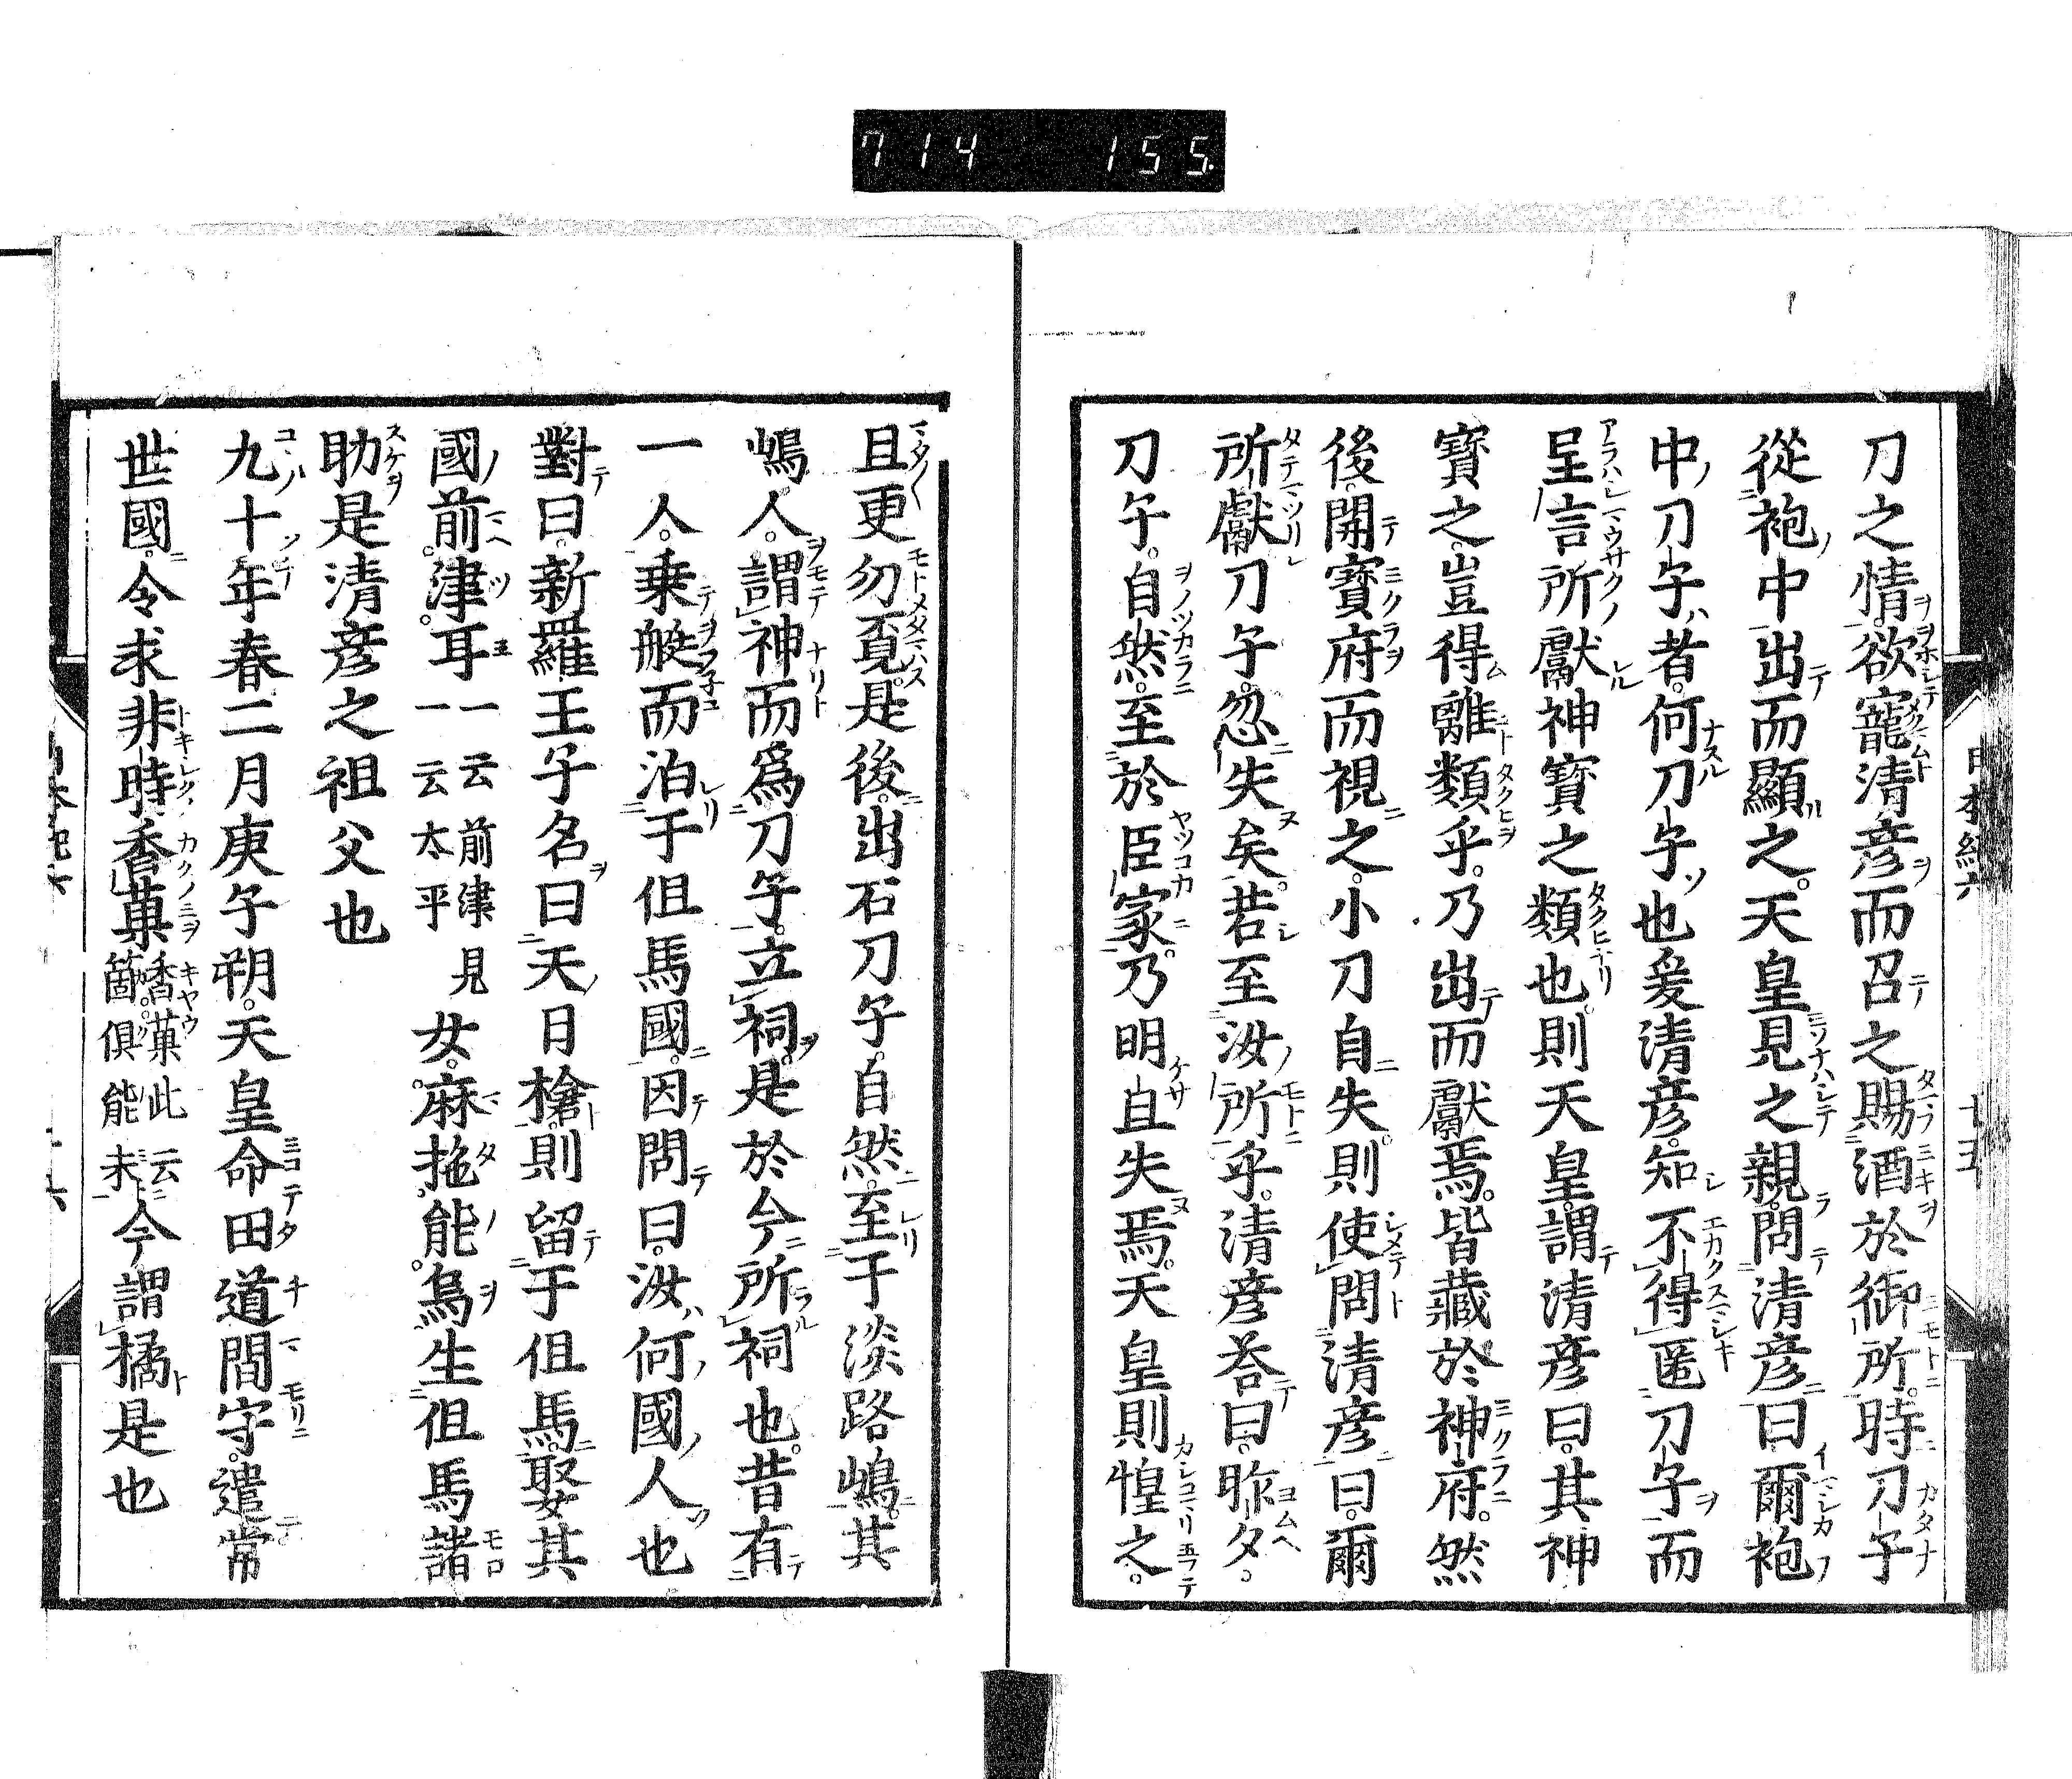 714 155
刀之情欲寵清彦而召之賜酒於御所時刀子
從袍中出而顯之天皇見之親問清彦曰爾袍
中刀子者何刀子也爰清彦知不得匿刀子而
呈言所獻神寶之類也則天皇謂清彦曰其神
寶之豈得離類乎乃出而獻焉皆藏於神府然
後開寶府而視之小刀自失則使問清彦曰爾
所獻刀子忽失矣若至汝所乎清彦荅曰昨夕
刀子自然至於臣家乃明旦失焉天皇則惶之
且更勿覓是後出石刀子自然至于淡路嶋其
嶋人謂神而爲刀子立祠是於今所祠也昔有
一人乗艇而泊于但馬國因問曰汝何國人也
對曰新羅王子名曰天日槍則留于但馬娶其
國前津耳一云前津見一云太平女麻拖能烏生但馬諸
助是清彦之祖父也
九十年春二月庚子朔天皇命田道間守遣常
世國令求非時香菓香菓此云箇倶能未今謂橘是也